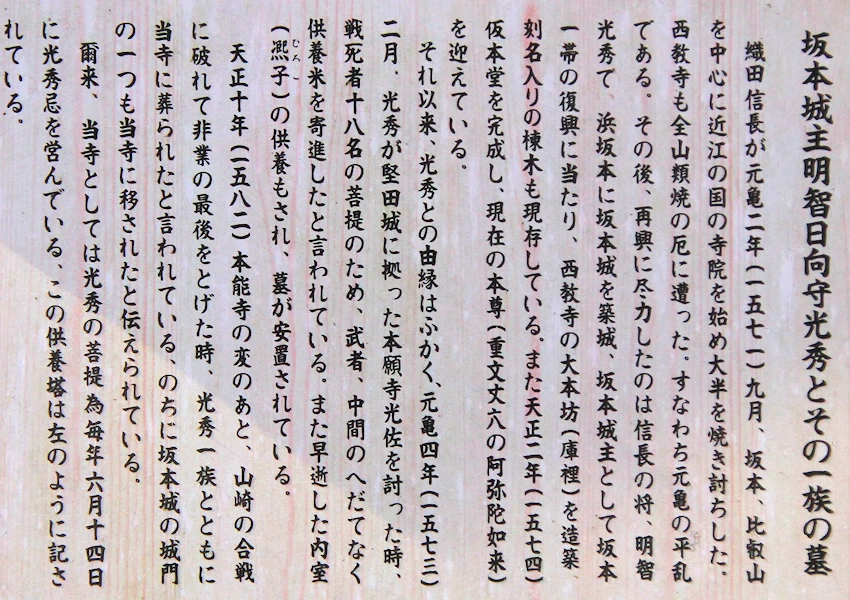 坂本城主明智日向守光秀とその一族の墓
織田信長が元亀二年(一五七一)九月、坂本、比叡山
を中心に近江の国の寺院を始め大半を焼き討ちした。
西教寺も全山類焼の厄に遭った。すなわち元亀の平乱
である。その後、再興に尽力したのは信長の将、明智
光秀で、浜坂本に坂本城を築城、坂本城主として坂本
一帯の復興に当たり、西教寺の大本坊(庫裡)を造築、
刻名入りの棟木も現存している。また天正二年(一五七四)
仮本堂を完成し、現在の本尊(重文丈六の阿弥陀如来)
を迎えている。
それ以来、光秀との由縁はふかく、元亀四年(一五七三)
二月、光秀が堅田城に拠った本願寺光佐を討った時、
戦死者十八名の菩提のため、武者、中間のへだてなく
供養米を寄進したと言われている。また早逝した内室
(凞子)の供養もされ、墓が安置されている。
天正十年(一五八二)本能寺の変のあと、山崎の合戦
に破れて非業の最後をとげた時、光秀一族とともに
当寺に葬られたと言われている、のちに坂本城の城門
の一つも当寺に移されたと伝えられている。
爾来、当寺としては光秀の菩提為毎年六月十四日
に光秀忌を営んでいる、この供養塔は左のように記さ
れている。